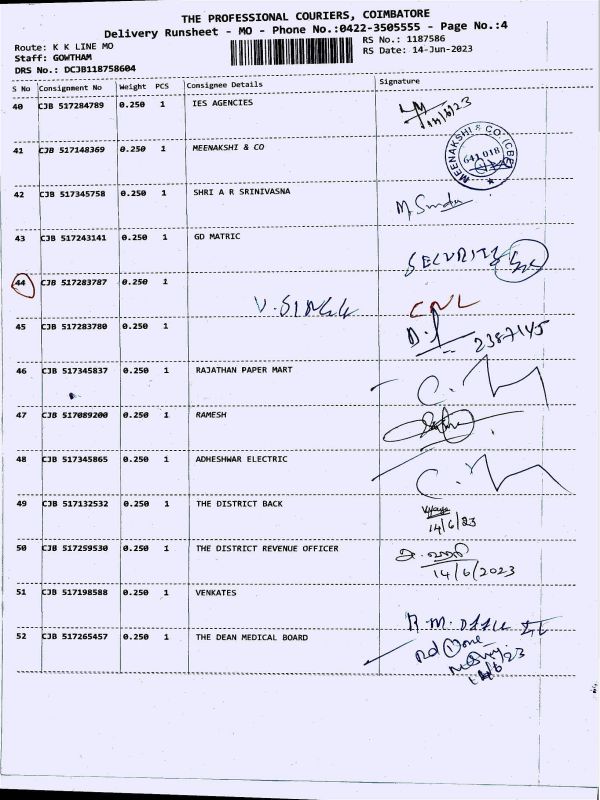 THE PROFESSIONAL COURIERS, COIMBATORE
Delivery Runsheet - MO - Phone No.:0422-3505555 - Page No.:4
Route: K K LINE MO
Staff: GOWTHAM
DRS No.: DCJB118758604
RS No.: 1187586
RS Date: 14-Jun-2023
S No Consignment No Weight PCS Consignee Details Signature
40 CJB 517284789 0.250 1 IES AGENCIES
41 CJB 517148369 0.250 1 MEENAKSHI & CO
MEENAKSHI & CO (CBE) 641 018
42 CJB 517345758 0.250 1 SHRI A R SRINIVASNA
43 CJB 517243141 0.250 1 GD MATRIC
SECURITY
44 CJB 517283787 0.250 1
V. SINGH
45 CJB 517283780 0.250 1
2387145
46 CJB 517345837 0.250 1 RAJATHAN PAPER MART
47 CJB 517089200 0.250 1 RAMESH
48 CJB 517345865 0.250 1 ADHESHWAR ELECTRIC
49 CJB 517132532 0.250 1 THE DISTRICT BACK
14/6/23
50 CJB 517259530 0.250 1 THE DISTRICT REVENUE OFFICER
14/6/2023
51 CJB 517198588 0.250 1 VENKATES
52 CJB 517265457 0.250 1 THE DEAN MEDICAL BOARD